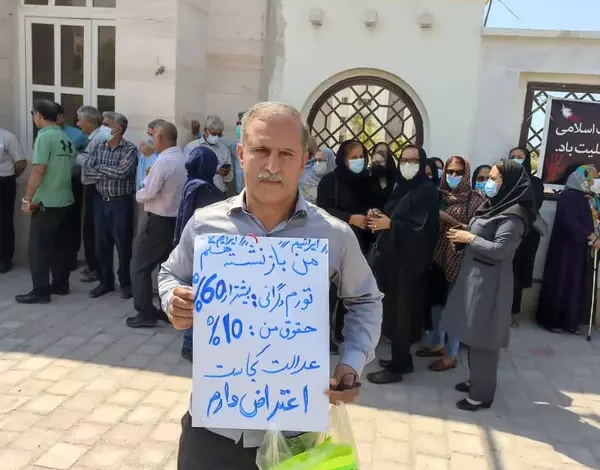 "ایرانیم" "ایرانیم"
من بازنشسته هستم
تورم و گرانی: بیشتر از 60%
حقوق من: 10%
عدالت کجاست
اعتراض دارم
اسلامی
باد.